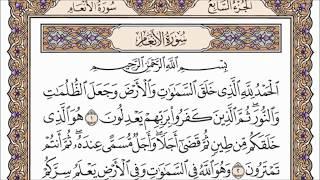 الجزء السابع
سورة الأنعام
سورة الأنعام
بسم الله الرحمن الرحيم
الحمد لله الذي خلق السموات والأرض وجعل الظلمات
والنور ثم الذين كفروا بربهم يعدلون ١ هو الذي
خلقكم من طين ثم قضى أجلا وأجل مسمى عنده ثم أنتم
تمترون ٢ وهو الله في السموات وفي الأرض يعلم سركم